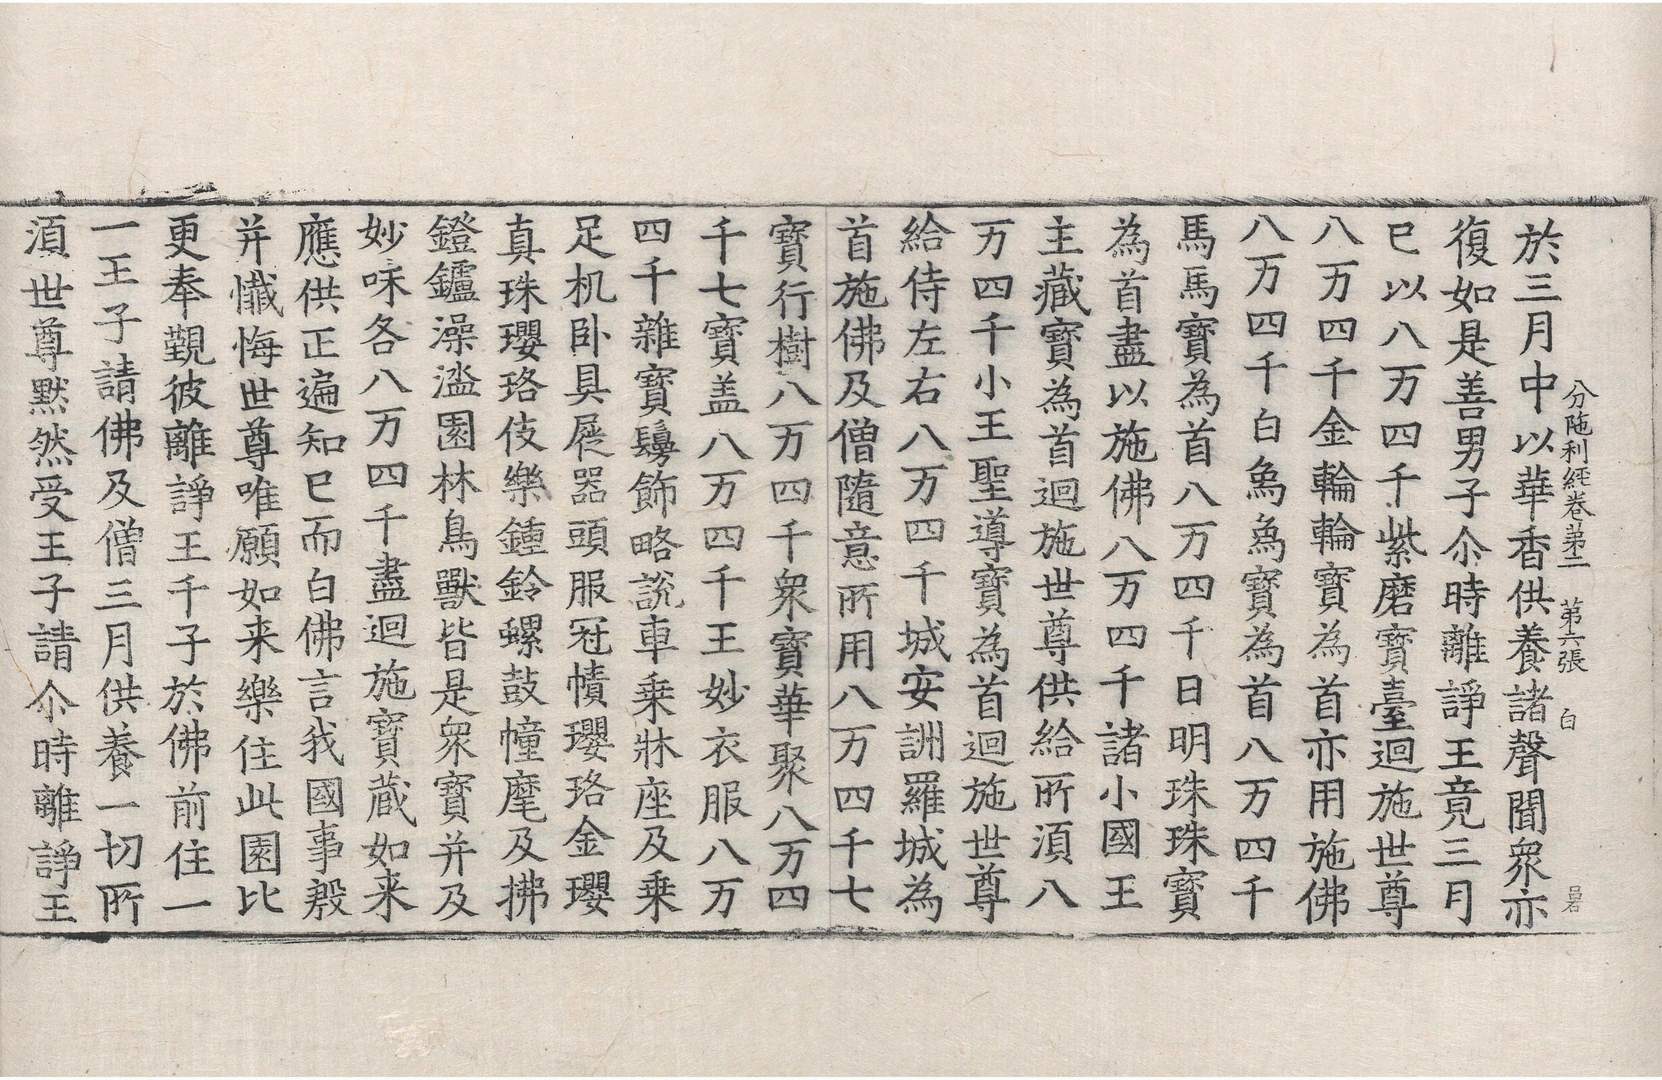 分陁利經卷第二　第六張　白
於三月中以華香供養諸聲聞衆亦
復如是善男子尒時離諍王竟三月
已以八万四千紫磨寶臺迴施世尊
八万四千金輪輪寶為首亦用施佛
八万四千白象象寶為首八万四千
馬馬寶為首八万四千日明珠珠寶
為首盡以施佛八万四千諸小國王
主藏寶為首迴施世尊供給所湏八
万四千小王聖導寶為首迴施世尊
給侍左右八万四千城安詶羅城為
首施佛及僧隨意所用八万四千七
寶行樹八万四千衆寶華聚八万四
千七寶盖八万四千王妙衣服八万
四千雜寶鬘飾略説車乗牀座及乗
足机卧具屣器頭服冠幘瓔珞金瓔
真珠瓔珞伎樂鍾鈴螺鼓幢麾及拂
鐙鑪澡溢園林鳥獸皆是衆寶并及
妙味各八万四千盡迴施寶蔵如来
應供正遍知已而白佛言我國事殷
并懺悔世尊唯願如来樂住此園比
更奉覲彼離諍王千子於佛前住一
一王子請佛及僧三月供養一切所
湏世尊黙然受王子請尒時離諍王